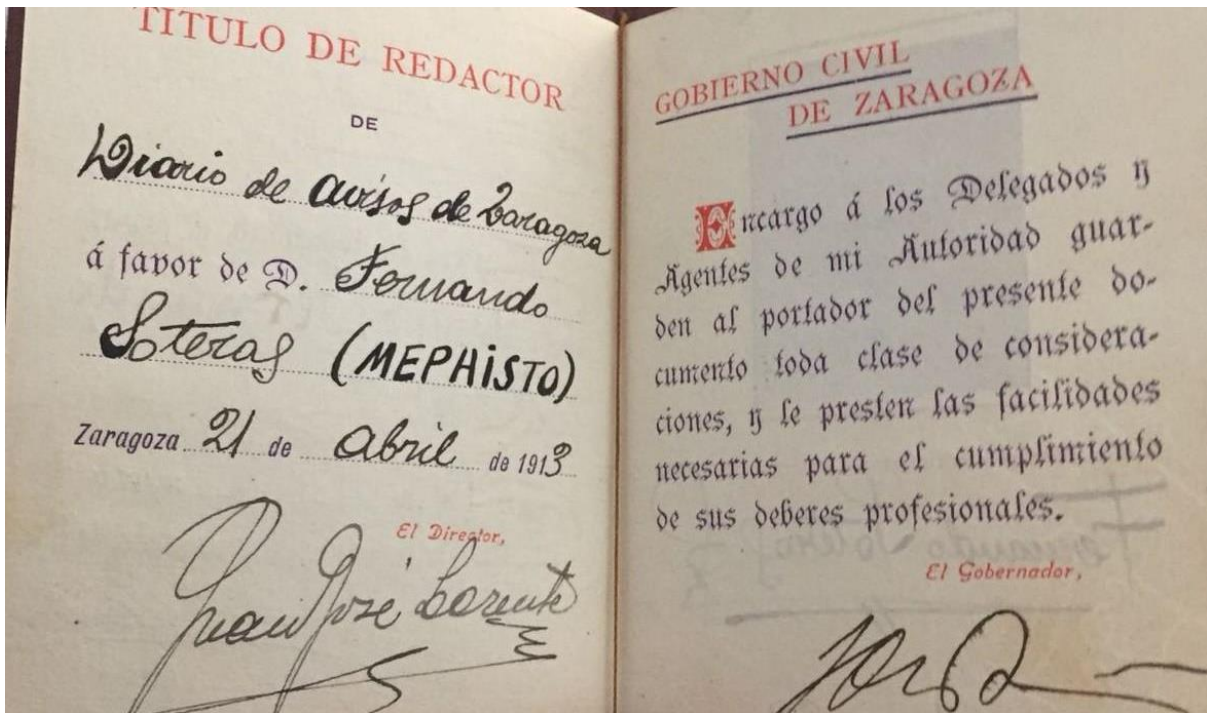 TITULO DE REDACTOR
DE
Diario de avisos de Zaragoza
á favor de D. Fernando
Soteras (MEPHiSTO)
Zaragoza 21 de abril de 1913
El Director,
Juan José Lorente
GOBIERNO CIVIL
DE ZARAGOZA
Encargo á los Delegados y
Agentes de mi Autoridad guar-
den al portador del presente do-
cumento toda clase de considera-
ciones, y le presten las facilidades
necesarias para el cumplimiento
de sus deberes profesionales.
El Gobernador,